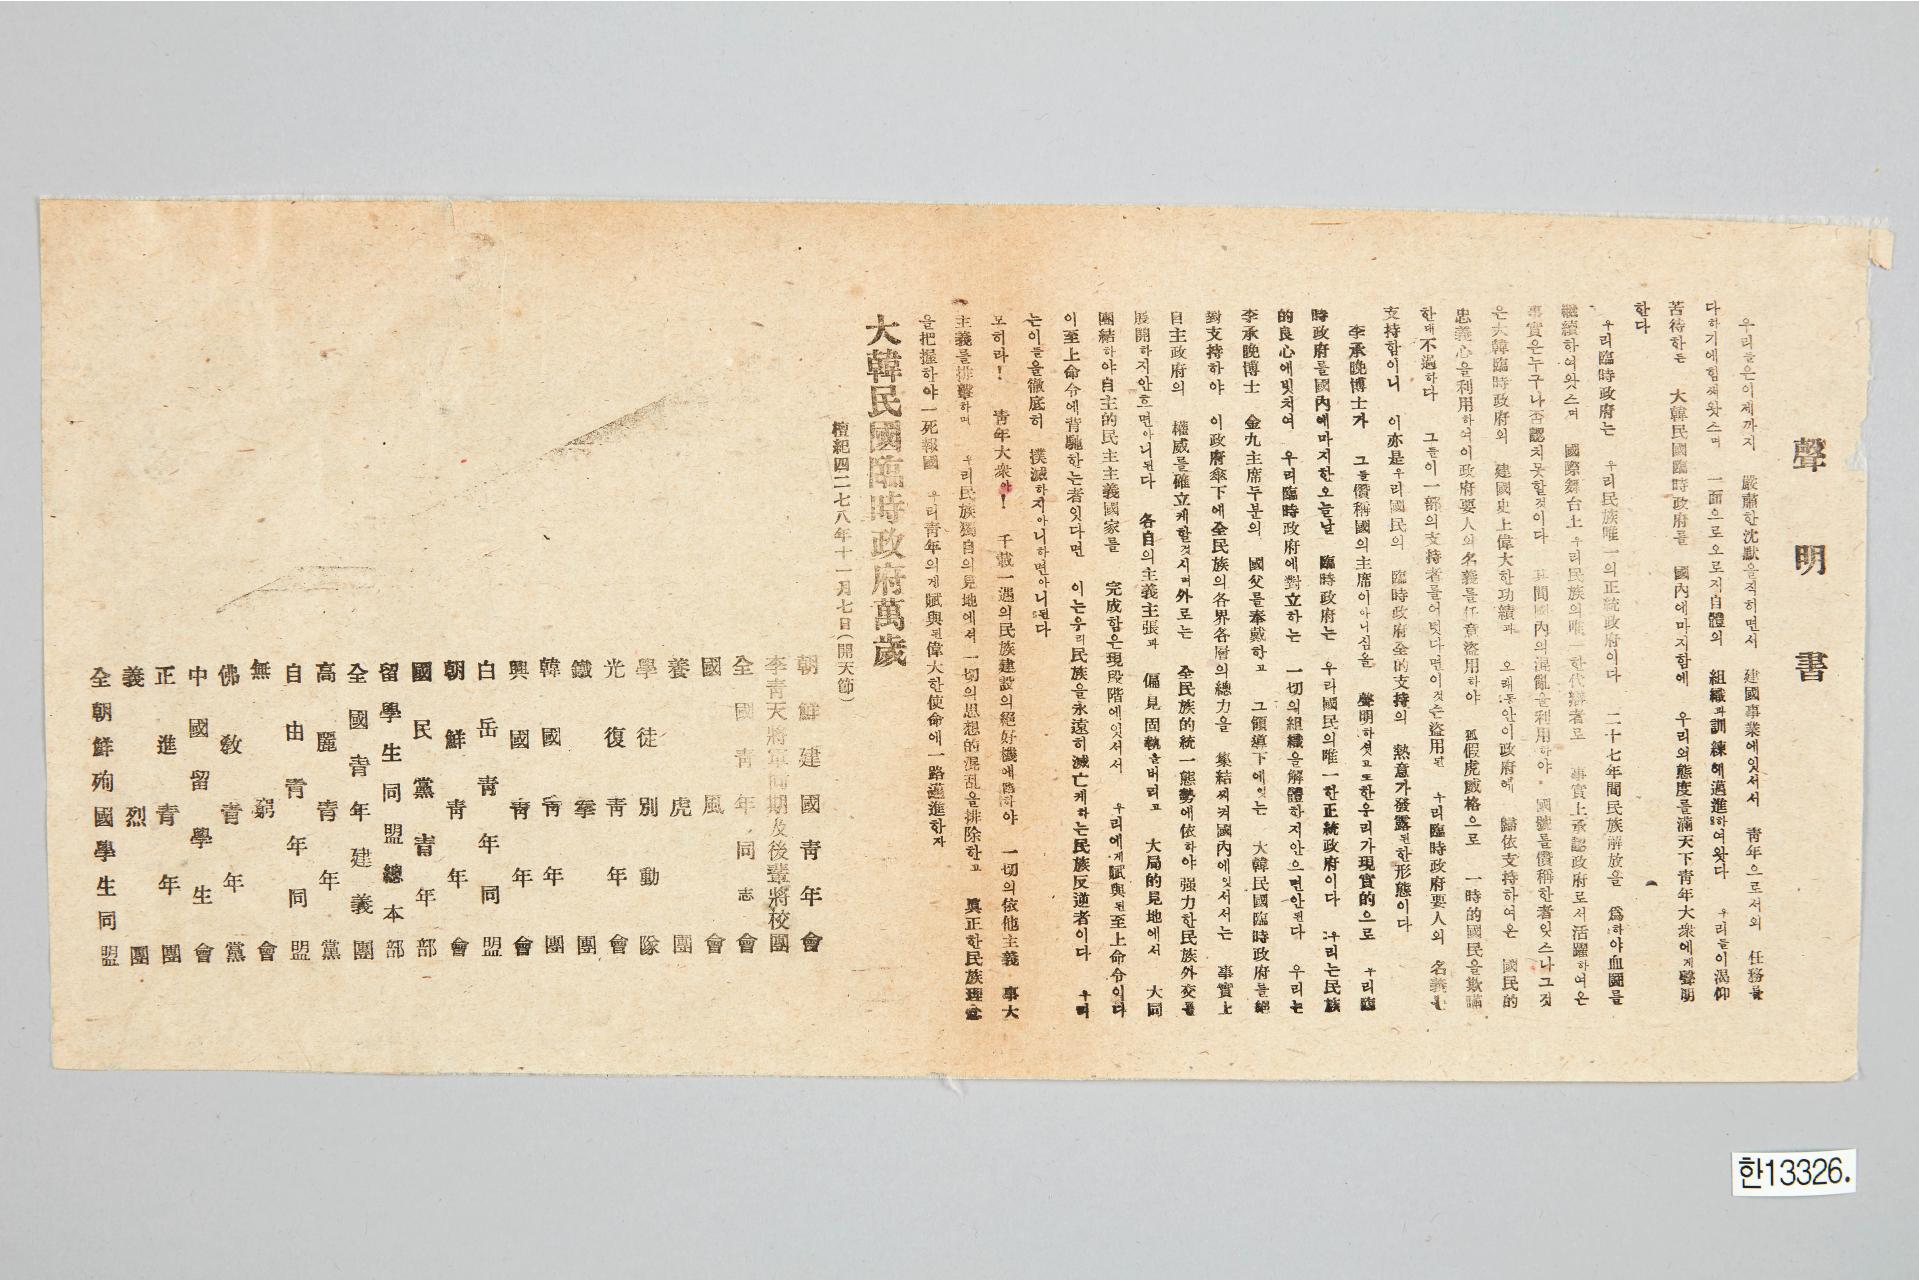 聲明書
우리들은이제까지 嚴肅한沈默을직히면서 建國事業에잇서서 靑年으로서의 任務를
다하기에힘써왓스며 一面으로오로지自體의 組織과訓練에邁進하여왓다 우리들이渴仰
苦待하든 大韓民國臨時政府를 國內에마지함에 우리의態度를滿天下靑年大衆에게聲明
한다
우리臨時政府는 우리民族唯一의正統政府이다 二十七年間民族解放을 爲하야血鬪를
繼續하여왓스며 國際舞台上 우리民族의唯一한代辯者로 事實上承認政府로서活躍하여온
事實은누구나否認치못할것이다 其間國內의混亂을利用하야 國號를僭稱한者잇스나그것
은大韓臨時政府의 建國史上偉大한功績과 오래동안이政府에 歸依支持하여온 國民的
忠義心을利用하여이政府要人의名義를任意盜用하야 狐假虎威格으로 一時的國民을欺瞞
한데不過하다 그들이一部의支持者를어덧다면이것은盜用된 우리臨時政府要人의 名義
支持함이니 이亦是우리國民의 臨時政府全的支持의 熱意가發露된한形態이다
李承晩博士가 그들僭稱國의主席이아니심을 聲明하셧고또한우리가現實的으로 우리臨
時政府를國內에마지한오늘날 臨時政府는 우리國民의唯一한正統政府이다 우리는民族
的良心에빗처여 우리臨時政府에對立하는 一切의組織을解體하지안으면안된다 우리는
李承晩博士 金九主席두분의 國父를奉戴하고 그領導下에잇는 大韓民國臨時政府를絕
對支持하야 이政府傘下에全民族의各界各層의總力을 集結식켜國內에잇서서는 事實上
自主政府의 權威를確立케할것시며外로는 全民族的統一態勢에依하야强力한民族外交를
展開하지안흐면아니된다 各自의主義主張과 偏見固執을버리고 大局的見地에서 大同
團結하야自主的民主主義國家를 完成함은現段階에잇서서 우리에게賦與된至上命令이다
이至上命令에背馳한는者잇다면 이는우리民族을永遠히滅亡케하는民族反逆者이다 우리
는이들을徹底히 撲滅하지아니하면아니된다
모히라! 靑年大衆아! 千載一遇의民族建設의絕好機에臨하야 一切의依他主義 事大
主義를排擊하며 우리民族獨自의見地에서 一切의思想的混乱을排除하고 眞正한民族理念
을把握하야一死報國 우리靑年의게賦與된偉大한使命에一路邁進하자
大韓民國臨時政府萬歲
檀紀四二七八年十一月七日(開天節)
朝鮮建國靑年會
李靑天將軍同期及後輩將校團
全國靑年同志會
國風會
養虎團
學徒別動隊
光復靑年會
鐵拳團
韓國靑年團
興國靑年會
白岳靑年同盟
朝鮮靑年會
國民黨靑年部
留學生同盟總本部
全國靑年建義團
高麗靑年黨
自由靑年同盟
無窮會
佛敎靑年黨
中國留學生會
正進靑年團
義烈團
全朝鮮殉國學生同盟
한13326.